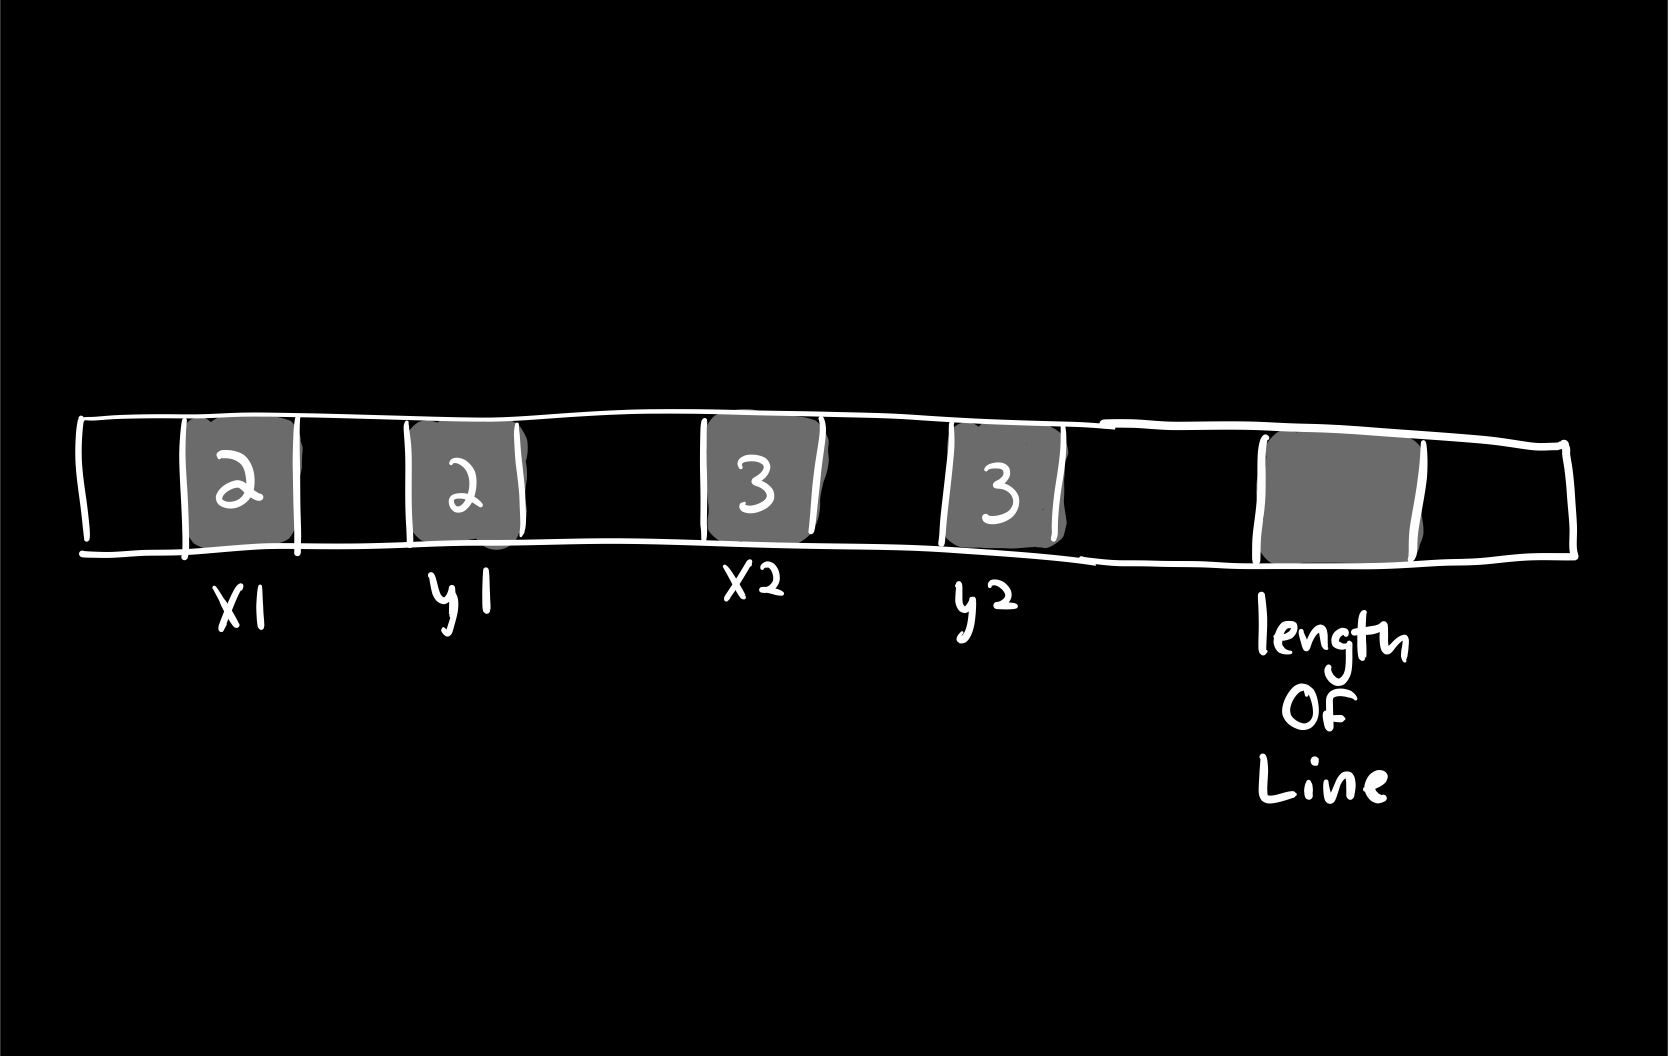 2 2 3 3
x1 y1 x2 y2
length
Of
Line